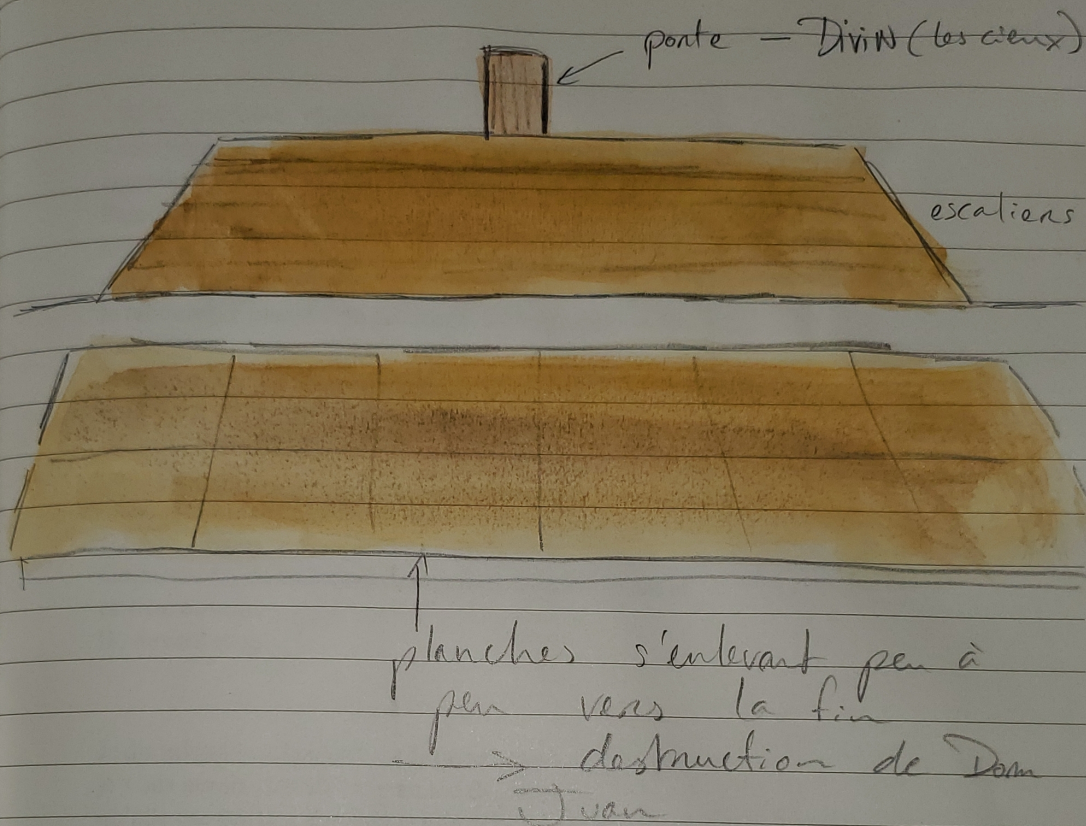 porte — Divin (les cieux)
escaliers
planches s'enlevant peu à
peu vers la fin
destruction de Dom
Juan